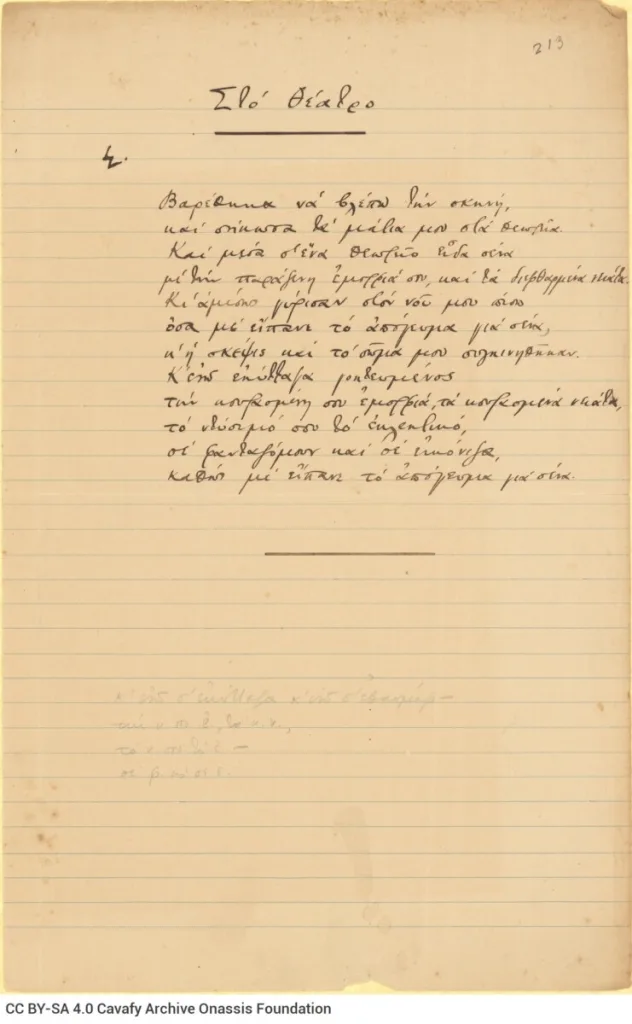 213
Στό θέατρο
Βαρέθηκα νά βλέπω τήν σκηνή,
καί σήκωσα τά μάτια μου στά θεωρεῖα.
Καί μέσα σ' ἕνα θεωρεῖο εἶδα σένα
μέ τήν παράξενη ἐμορφιά σου, καί τά διεφθαρμένα νειάτα.
Κι ἀμέσως γύρισαν στόν νοῦ μου πίσω
ὅσα μέ εἴπανε τό ἀπόγευμα γιά σένα,
κ' ἡ σκέψις καί τό σῶμα μου συγκινήθηκαν.
Κ' ἐνῶ ἐκύτταζα γοητευμένος
τήν κουρασμένη σου ἐμορφιά, τά κουρασμένα νειάτα,
τό ντύσιμό σου τό ἐκλεκτικό,
σέ φανταζόμουν καί σέ εἰκόνιζα,
καθώς μέ εἴπανε τό ἀπόγευμα γιά σένα.
CC BY-SA 4.0 Cavafy Archive Onassis Foundation